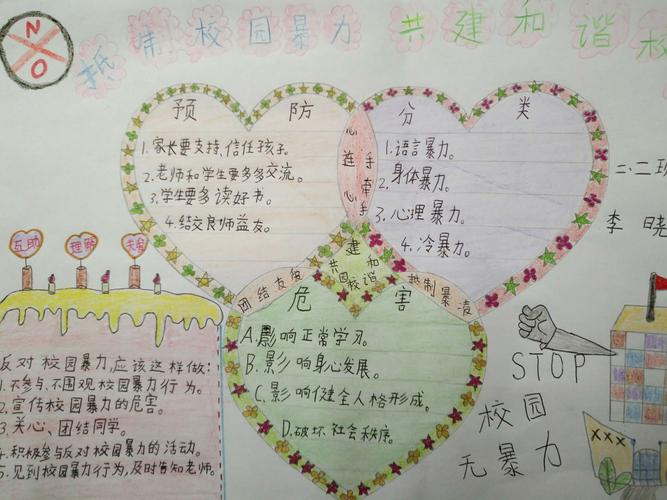 NO
抵制校园暴力 共建和谐校
预防
1.家长要支持、信任孩子。
2.老师和学生要多多交流。
3.学生要多读好书。
4.结交良师益友。
心连心
手牵手
分类
1.语言暴力。
2.身体暴力。
3.心理暴力。
4.冷暴力。
二.二班
李 晓
互助
理解
关爱
共建和谐校园
团结友爱
抵制暴凌
危害
A.影响正常学习。
B.影响身心发展。
C.影响健全人格形成。
D.破坏社会秩序。
反对校园暴力,应该这样做:
1.不参与、不围观校园暴力行为。
2.宣传校园暴力的危害。
3.关心、团结同学。
4.积极参与反对校园暴力的活动。
5.见到校园暴力行为,及时告知老师。
STOP
校园
无暴力
XXX